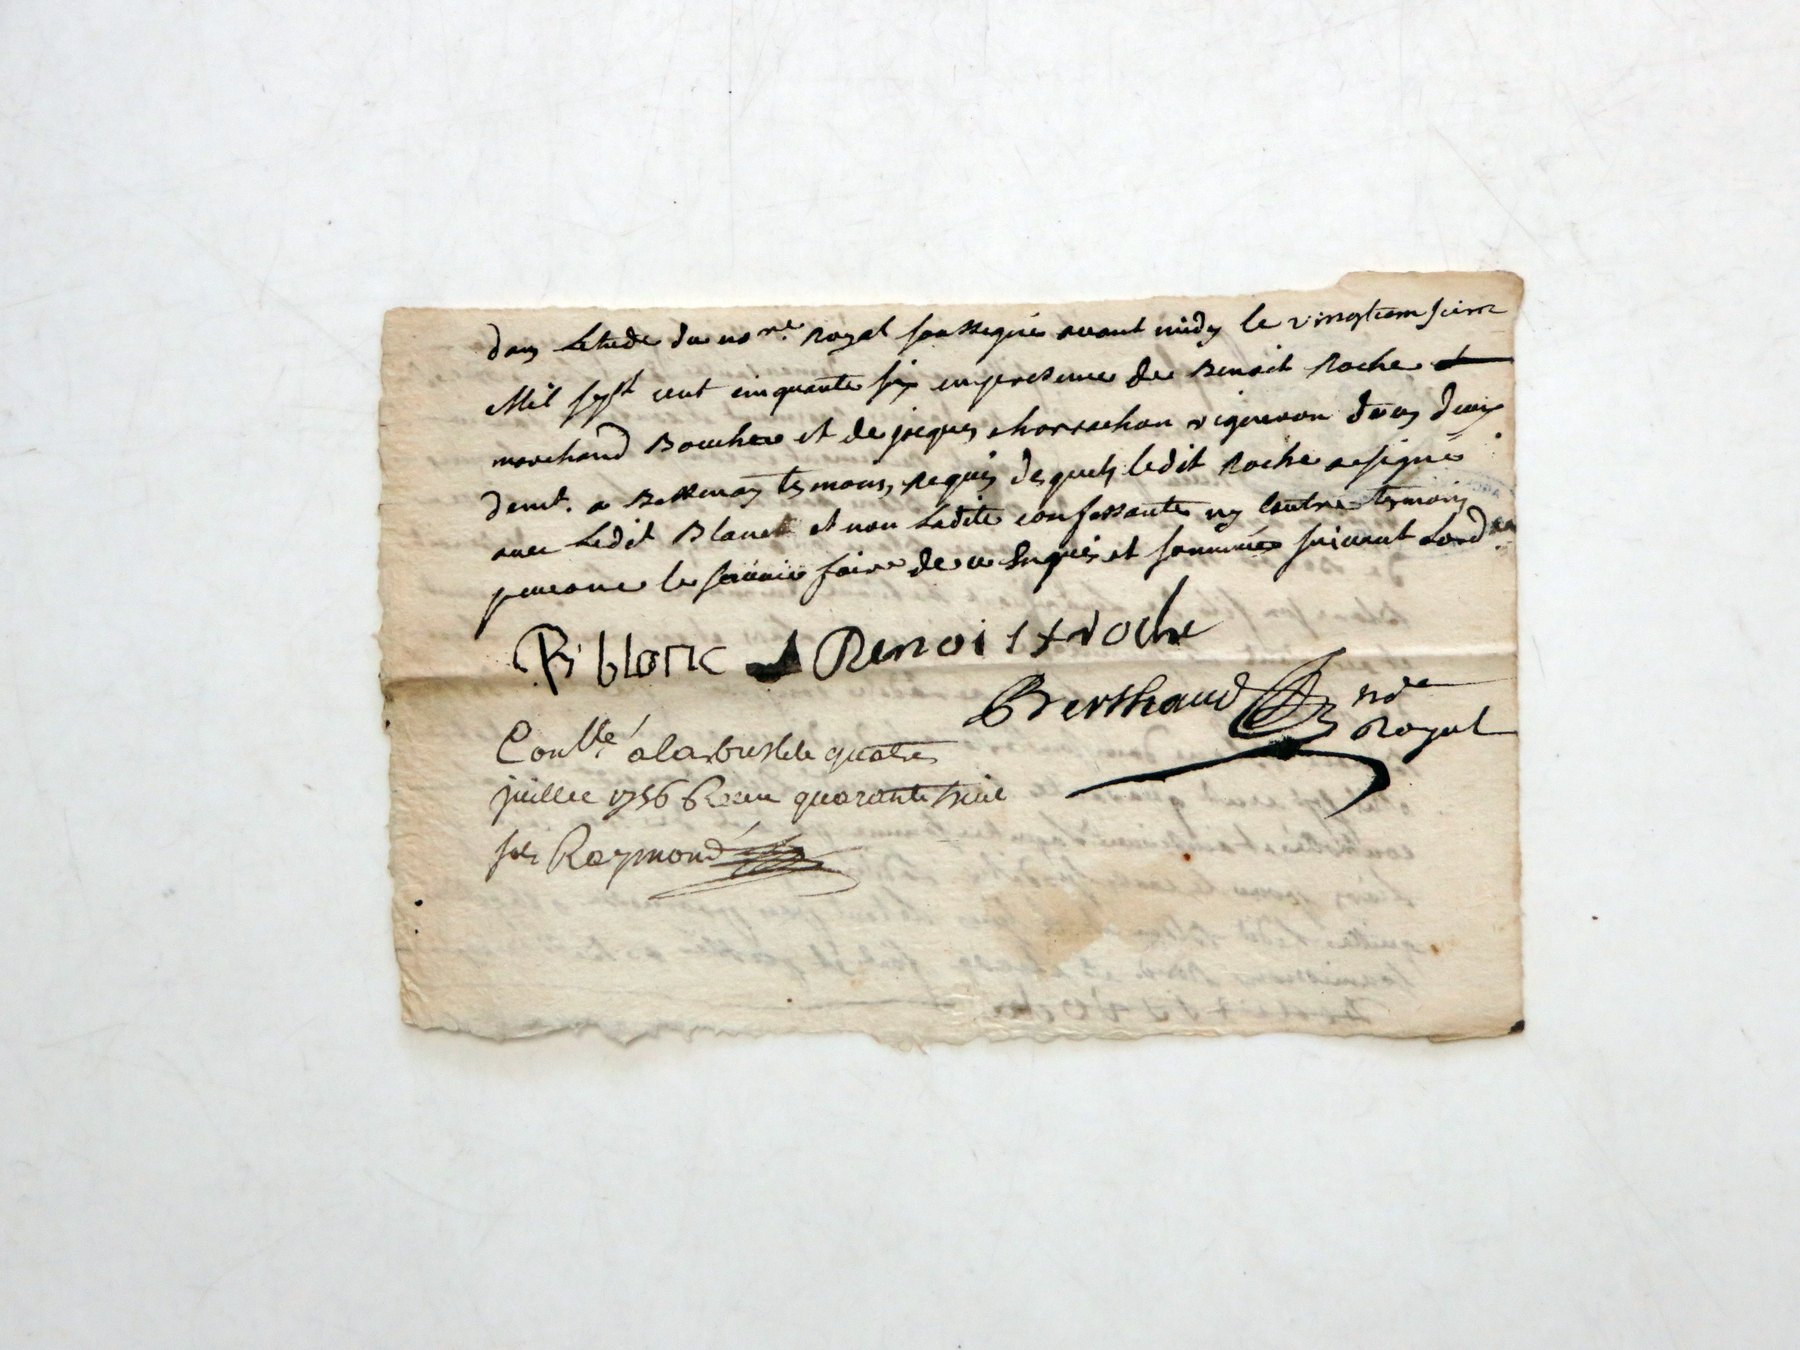 dans Letude du no.re Royal soussigné avant midy le vingtiem juin
Mil sept cent cinquante six en presence de Benoit Roche et
marchand Boucher et de jacques vigneron tous deux
demt. a Bessenay temoins Requis desquels ledit Roche a signé
avec Ledit Blanc et non Ladite confessante ny lautre temoin
pour ne le sçavoir faire de ce Enquis et sommés suivant Lord.
B blanc Benoist roche
Berthaud nore
Royal
Conllé a larbresle le quatre
juillet 1756 Receu quarante huit
sols Raymond